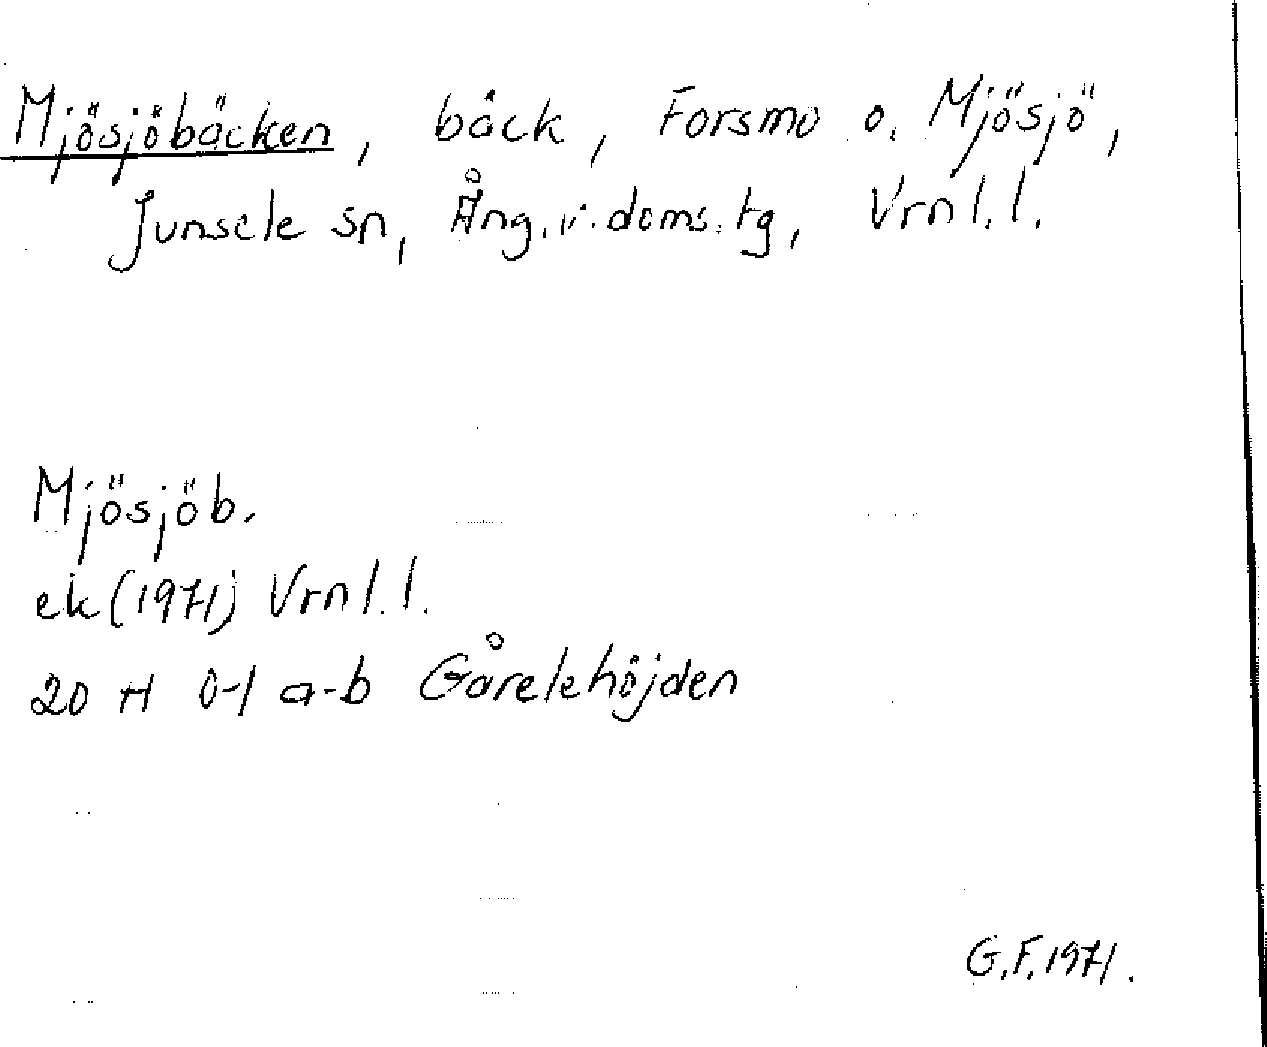 Mjösjöbäcken, bäck, Forsmo o. Mjösjö,
Junsele sn, Ång.v.doms.tg, Vrnl.l.
Mjösjöb.
ek(1971) Vrnl.l.
20 H 0-1 a-b Gårelehöjden
G.F.1971.